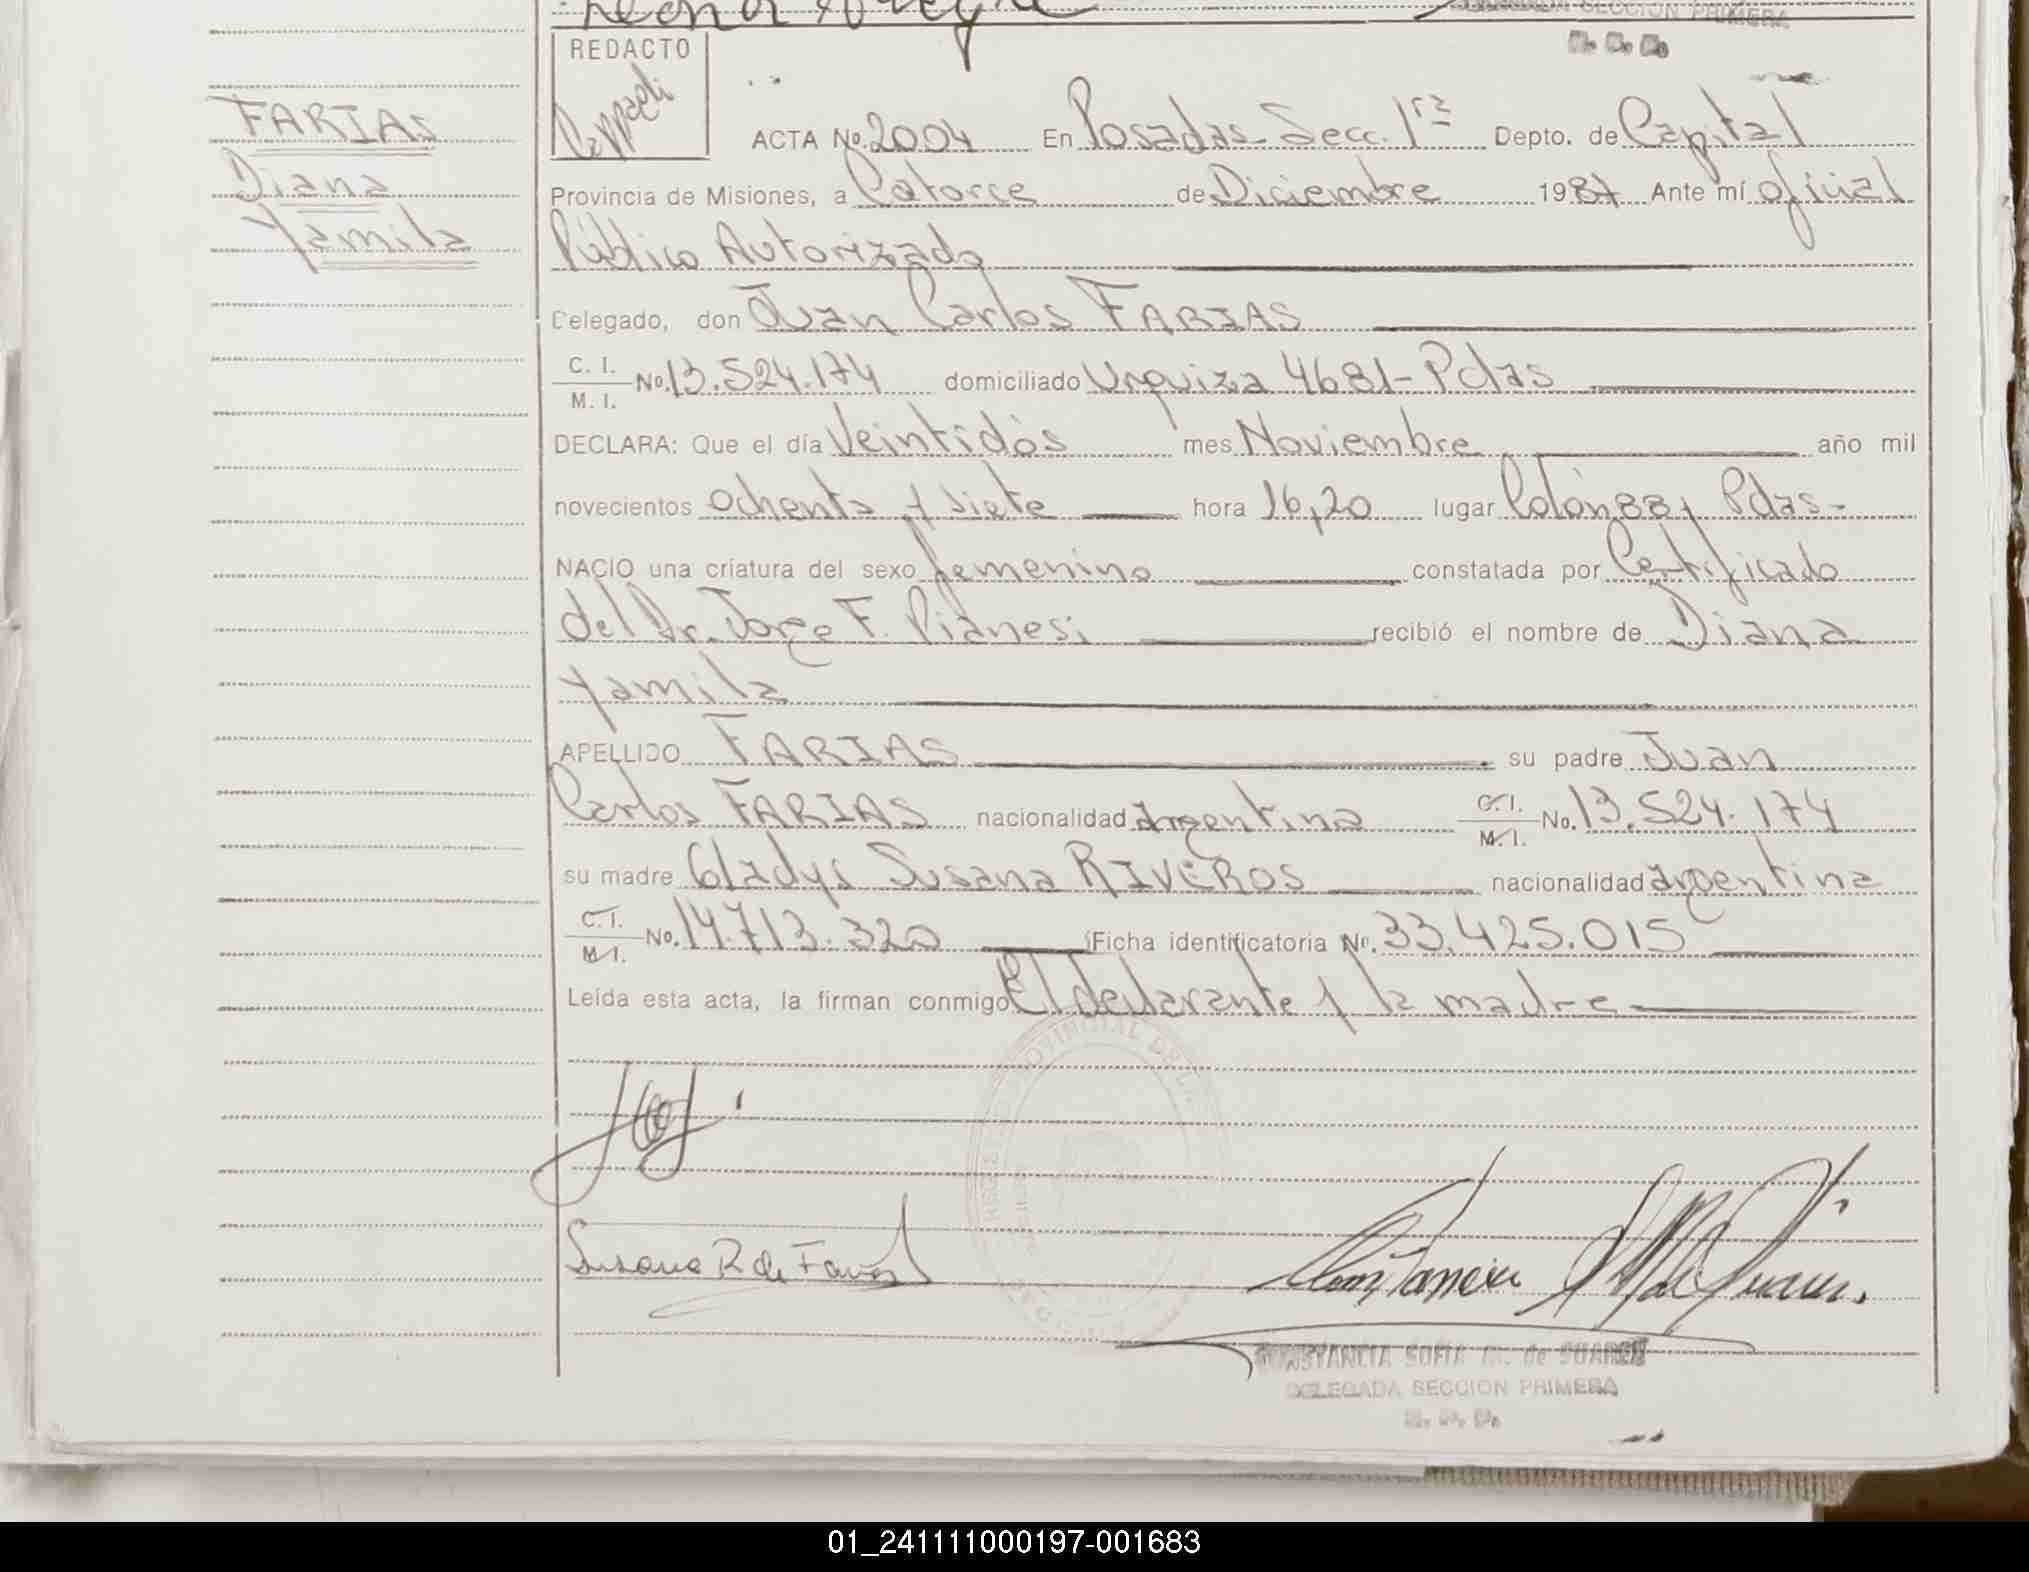 SECCION PRIMERA
REDACTO
FARIAS
Diana
Yamila
ACTA No. 2004 En Posadas-Secc. 1ra Depto. de Capital
Provincia de Misiones, a Catorce de Diciembre 1987 Ante mí oficial
Público Autorizado
Delegado, don Juan Carlos FARIAS
C. I. / M. I. No. 13.524.174 domiciliado Urquiza 4681-Pdas
DECLARA: Que el día Veintidós mes Noviembre año mil
novecientos Ochenta y siete hora 16,20 lugar Pdas-
NACIO una criatura del sexo femenino constatada por Certificado
del Dr. Jorge F. Pianesi recibió el nombre de Diana
Yamila
APELLIDO FARIAS su padre Juan
Carlos FARIAS nacionalidad argentina C. I. / M. I. No. 13.524.174
su madre Gladys Susana RIVEROS nacionalidad argentina
C. I. / M. I. No. 14.713.320 Ficha identificatoria No. 33.425.015
Leída esta acta, la firman conmigo El declarante y la madre
Susana R de Farias
CONSTANCIA SOFIA M. de SUAREZ
DELEGADA SECCION PRIMERA
R. P. P.
01_241111000197-001683